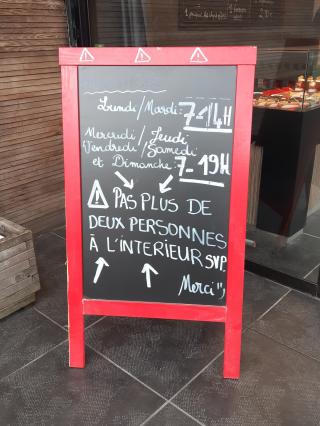 Lundi/Mardi: 7-14H
Mercredi/Jeudi
Vendredi/Samedi
et Dimanche: 7-19H
PAS PLUS DE
DEUX PERSONNES
À L'INTERIEUR SVP.
Merci